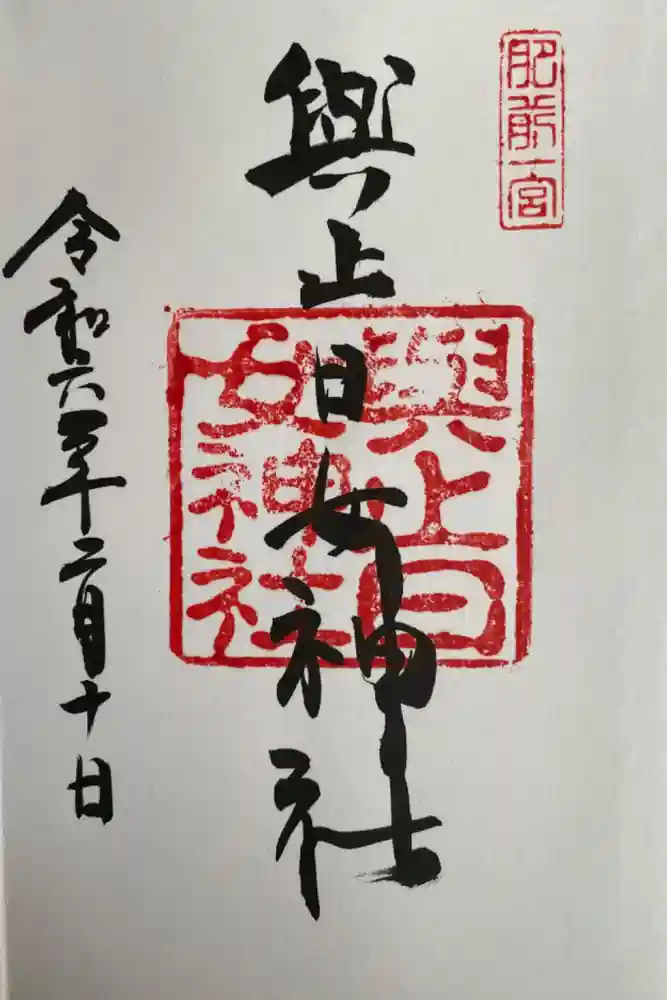 肥前一宮
與止日女神社
與止日
女神社
令和六年二月十日